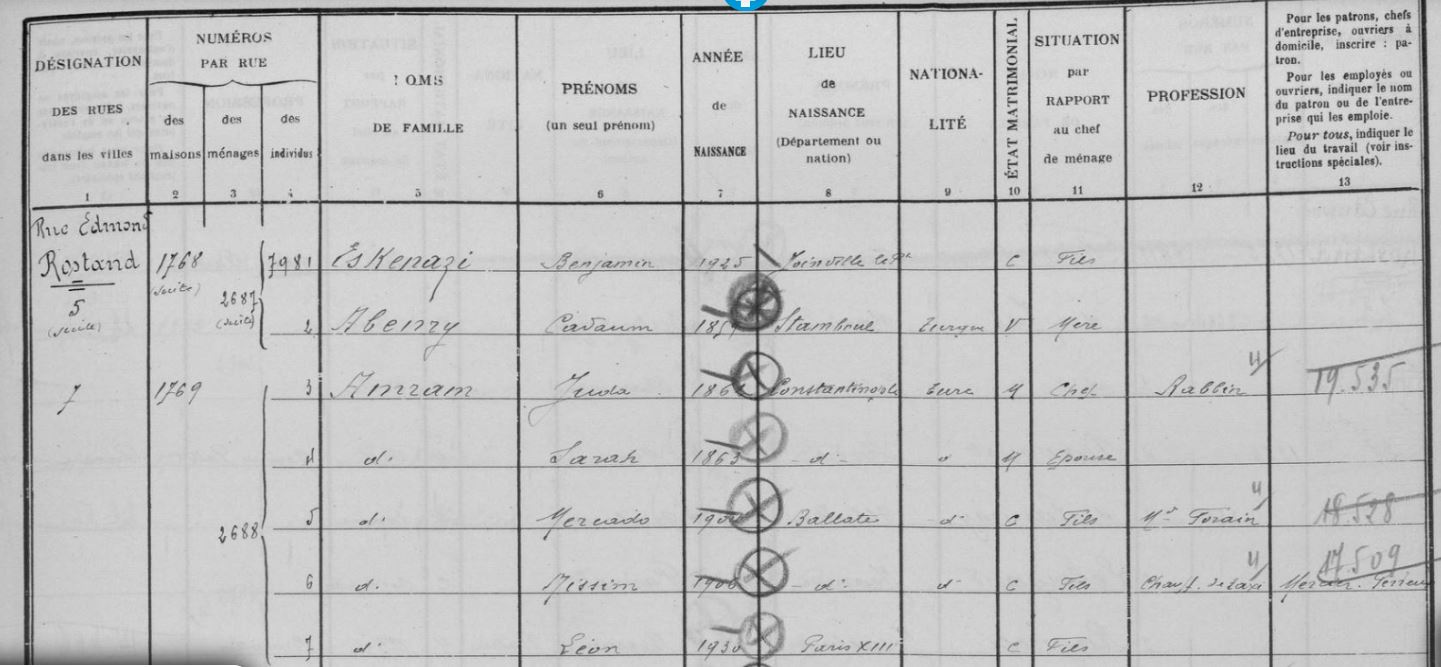 DÉSIGNATION DES RUES dans les villes 1
NUMÉROS PAR RUE
des maisons 2
des ménages 3
des individus 4
OMS DE FAMILLE 5
PRÉNOMS (un seul prénom) 6
ANNÉE de NAISSANCE 7
LIEU de NAISSANCE (Département ou nation) 8
NATIONA-LITÉ 9
ÉTAT MATRIMONIAL 10
SITUATION par RAPPORT au chef de ménage 11
PROFESSION 12
Pour les patrons, chefs
d'entreprise, ouvriers à
domicile, inscrire : pa-
tron.
Pour les employés ou
ouvriers, indiquer le nom
du patron ou de l'entre-
prise qui les emploie.
Pour tous, indiquer le
lieu du travail (voir ins-
tructions spéciales).
13
Rue Edmond
Rostand 1768 7981 Eskenazi Benjamin 1925 Joinville le Pt C Fils
(suite)
5 2687
(suite) (suite) 2 Abenzy Stamboul V Mère
7 1769 3 Amram Juda Constantinople turc M Chef Rabbin 4 19.535
4 d° Sarah 1863 d° d° M Epouse
2688 5 d° Mercado Ballate d° C Fils Md Forain 4 18.528
6 d° Nissim 1906 d° d° C Fils Chauf. de taxi 4 17.509
7 d° Léon 1930 Paris XIII C Fils